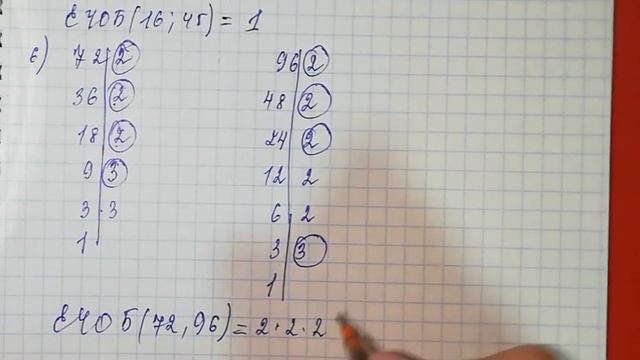 ЕҮОБ(16; 45) = 1
б) 72 2 96 2
36 2 48 2
18 2 24 2
9 3 12 2
3 3 6 2
1 3 3
1
ЕҮОБ(72, 96) = 2 · 2 · 2